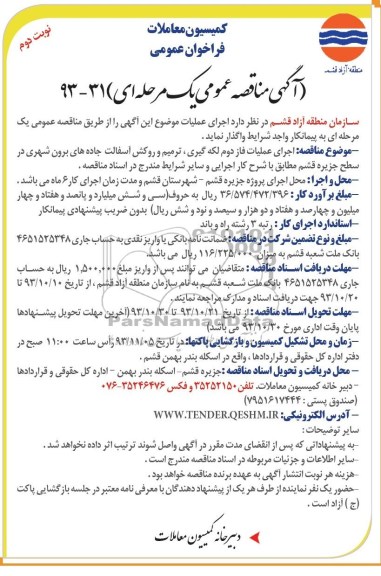 کمیسیون معاملات
فراخوان عمومی
نوبت دوم
منطقه آزاد قشم
(آگهی مناقصه عمومی یک مرحله ای) ۳۱-۹۳
سازمان منطقه آزاد قشم در نظر دارد اجرای عملیات موضوع این آگهی را از طریق مناقصه عمومی یک
مرحله ای به پیمانکار واجد شرایط واگذار نماید.
-موضوع مناقصه: اجرای عملیات فاز دوم لکه گیری، ترمیم و روکش آسفالت جاده های برون شهری در
سطح جزیره قشم مطابق با شرح کار اجرایی و سایر شرایط مندرج در اسناد مناقصه.
-محل و اجرا: محل اجرای پروژه جزیره قشم - شهرستان قشم و مدت زمان اجرای کار ۶ ماه می باشد.
-مبلغ برآورد کار: ۳۶/۵۷۴/۴۷۲/۳۹۶ ریال به حروف(سی و شش میلیارد و پانصد و هفتاد و چهار
میلیون و چهارصد و هفتاد و دو هزار و سیصد و نود و شش ریال) بدون ضریب پیشنهادی پیمانکار
استاندارد اجرای کار: رتبه ۳ رشته راه و باند
-مبلغ و نوع تضمین شرکت در مناقصه: ضمانت نامه بانکی یا واریز نقدی به حساب جاری ۴۶۵۱۵۲۵۳۴۸
بانک ملت شعبه قشم به میزان ۱۱۶/۲۲۵/۰۰۰ ریال می باشد.
-مهلت دریافت اسناد مناقصه: متقاضیان می توانند پس از واریز مبلغ ۱,۵۰۰,۰۰۰ ریال به حساب
جاری ۴۶۵۱۵۲۵۳۴۸ بانک ملت شعبه قشم به نام سازمان منطقه آزاد قشم، از تاریخ ۹۳/۱۰/۱۰ تا
۹۳/۱۰/۲۰ جهت دریافت اسناد و مدارک مراجعه نمایند.
-مهلت تحویل اسناد مناقصه: از تاریخ ۹۳/۱۰/۲۱ تا ۹۳/۱۰/۳۰ (آخرین مهلت تحویل پیشنهادها
پایان وقت اداری مورخ ۹۳/۱۰/۳۰ می باشد)
-زمان و محل تشکیل کمیسیون و بازگشایی پاکتها: در تاریخ ۹۳/۱۱/۰۵ رأس ساعت ۱۱:۰۰ صبح در
دفتر اداره کل حقوقی و قراردادها، واقع در اسکله بندر بهمن قشم.
-محل دریافت و تحویل اسناد مناقصه: جزیره قشم- اسکله بندر بهمن - اداره کل حقوقی و قراردادها
- دبیر خانه کمیسیون معاملات. تلفن ۳۵۲۵۲۱۵۰ و فکس ۳۵۲۴۶۴۷۶-۰۷۶
(صندوق پستی: ۷۹۵۱۶۱۷۴۴۴)
- آدرس الکترونیکی: WWW.TENDER.QESHM.IR
سایر توضیحات:
-به پیشنهاداتی که پس از انقضای مدت مقرر در آگهی واصل شوند ترتیب اثر داده نخواهد شد.
-سایر اطلاعات و جزئیات مربوطه در اسناد مناقصه مندرج است.
-هزینه هر نوبت انتشار آگهی به عهده برنده مناقصه خواهد بود.
-حضور یک نفر نماینده از طرف هر یک از پیشنهاد دهندگان با معرفی نامه معتبر در جلسه بازگشایی پاکت
(ج) آزاد است.
دبیرخانه کمیسیون معاملات
ParsNamadData